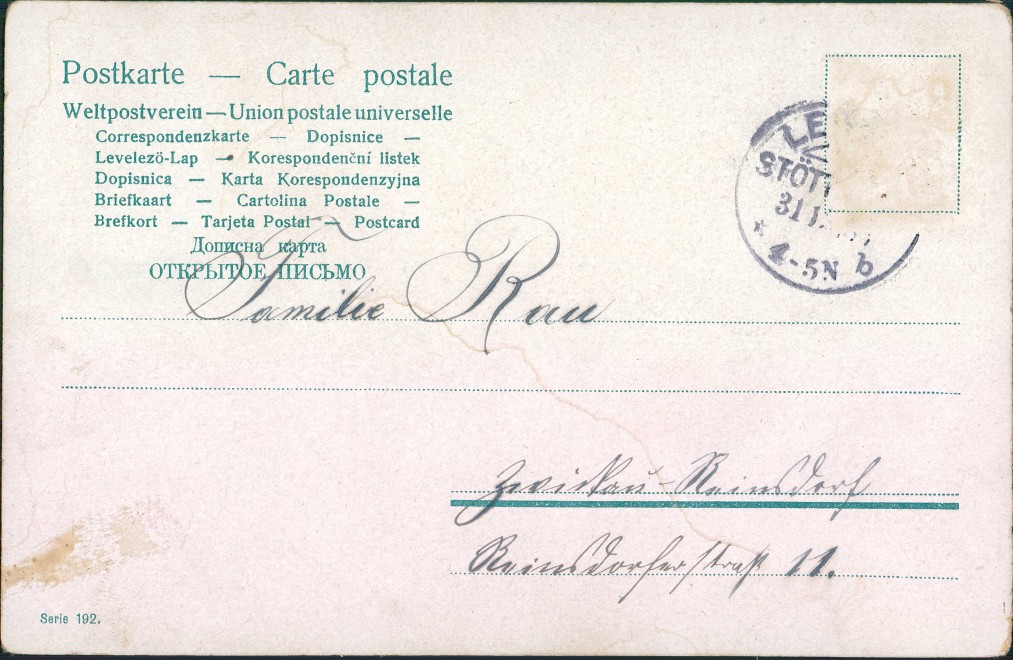 Postkarte — Carte postale
Weltpostverein — Union postale universelle
Correspondenzkarte — Dopisnice —
Levelezö-Lap — Korespondenční listek
Dopisnica — Karta Korespondenzyjna
Briefkaart — Cartolina Postale —
Brefkort — Tarjeta Postal — Postcard
Дописна карта
ОТКРЫТОЕ ПИСЬМО
LE
STÖT
31
4-5N b
Familie Rau
Zwickau-Reinsdorf
Reinsdorferstraß 11.
Serie 192.